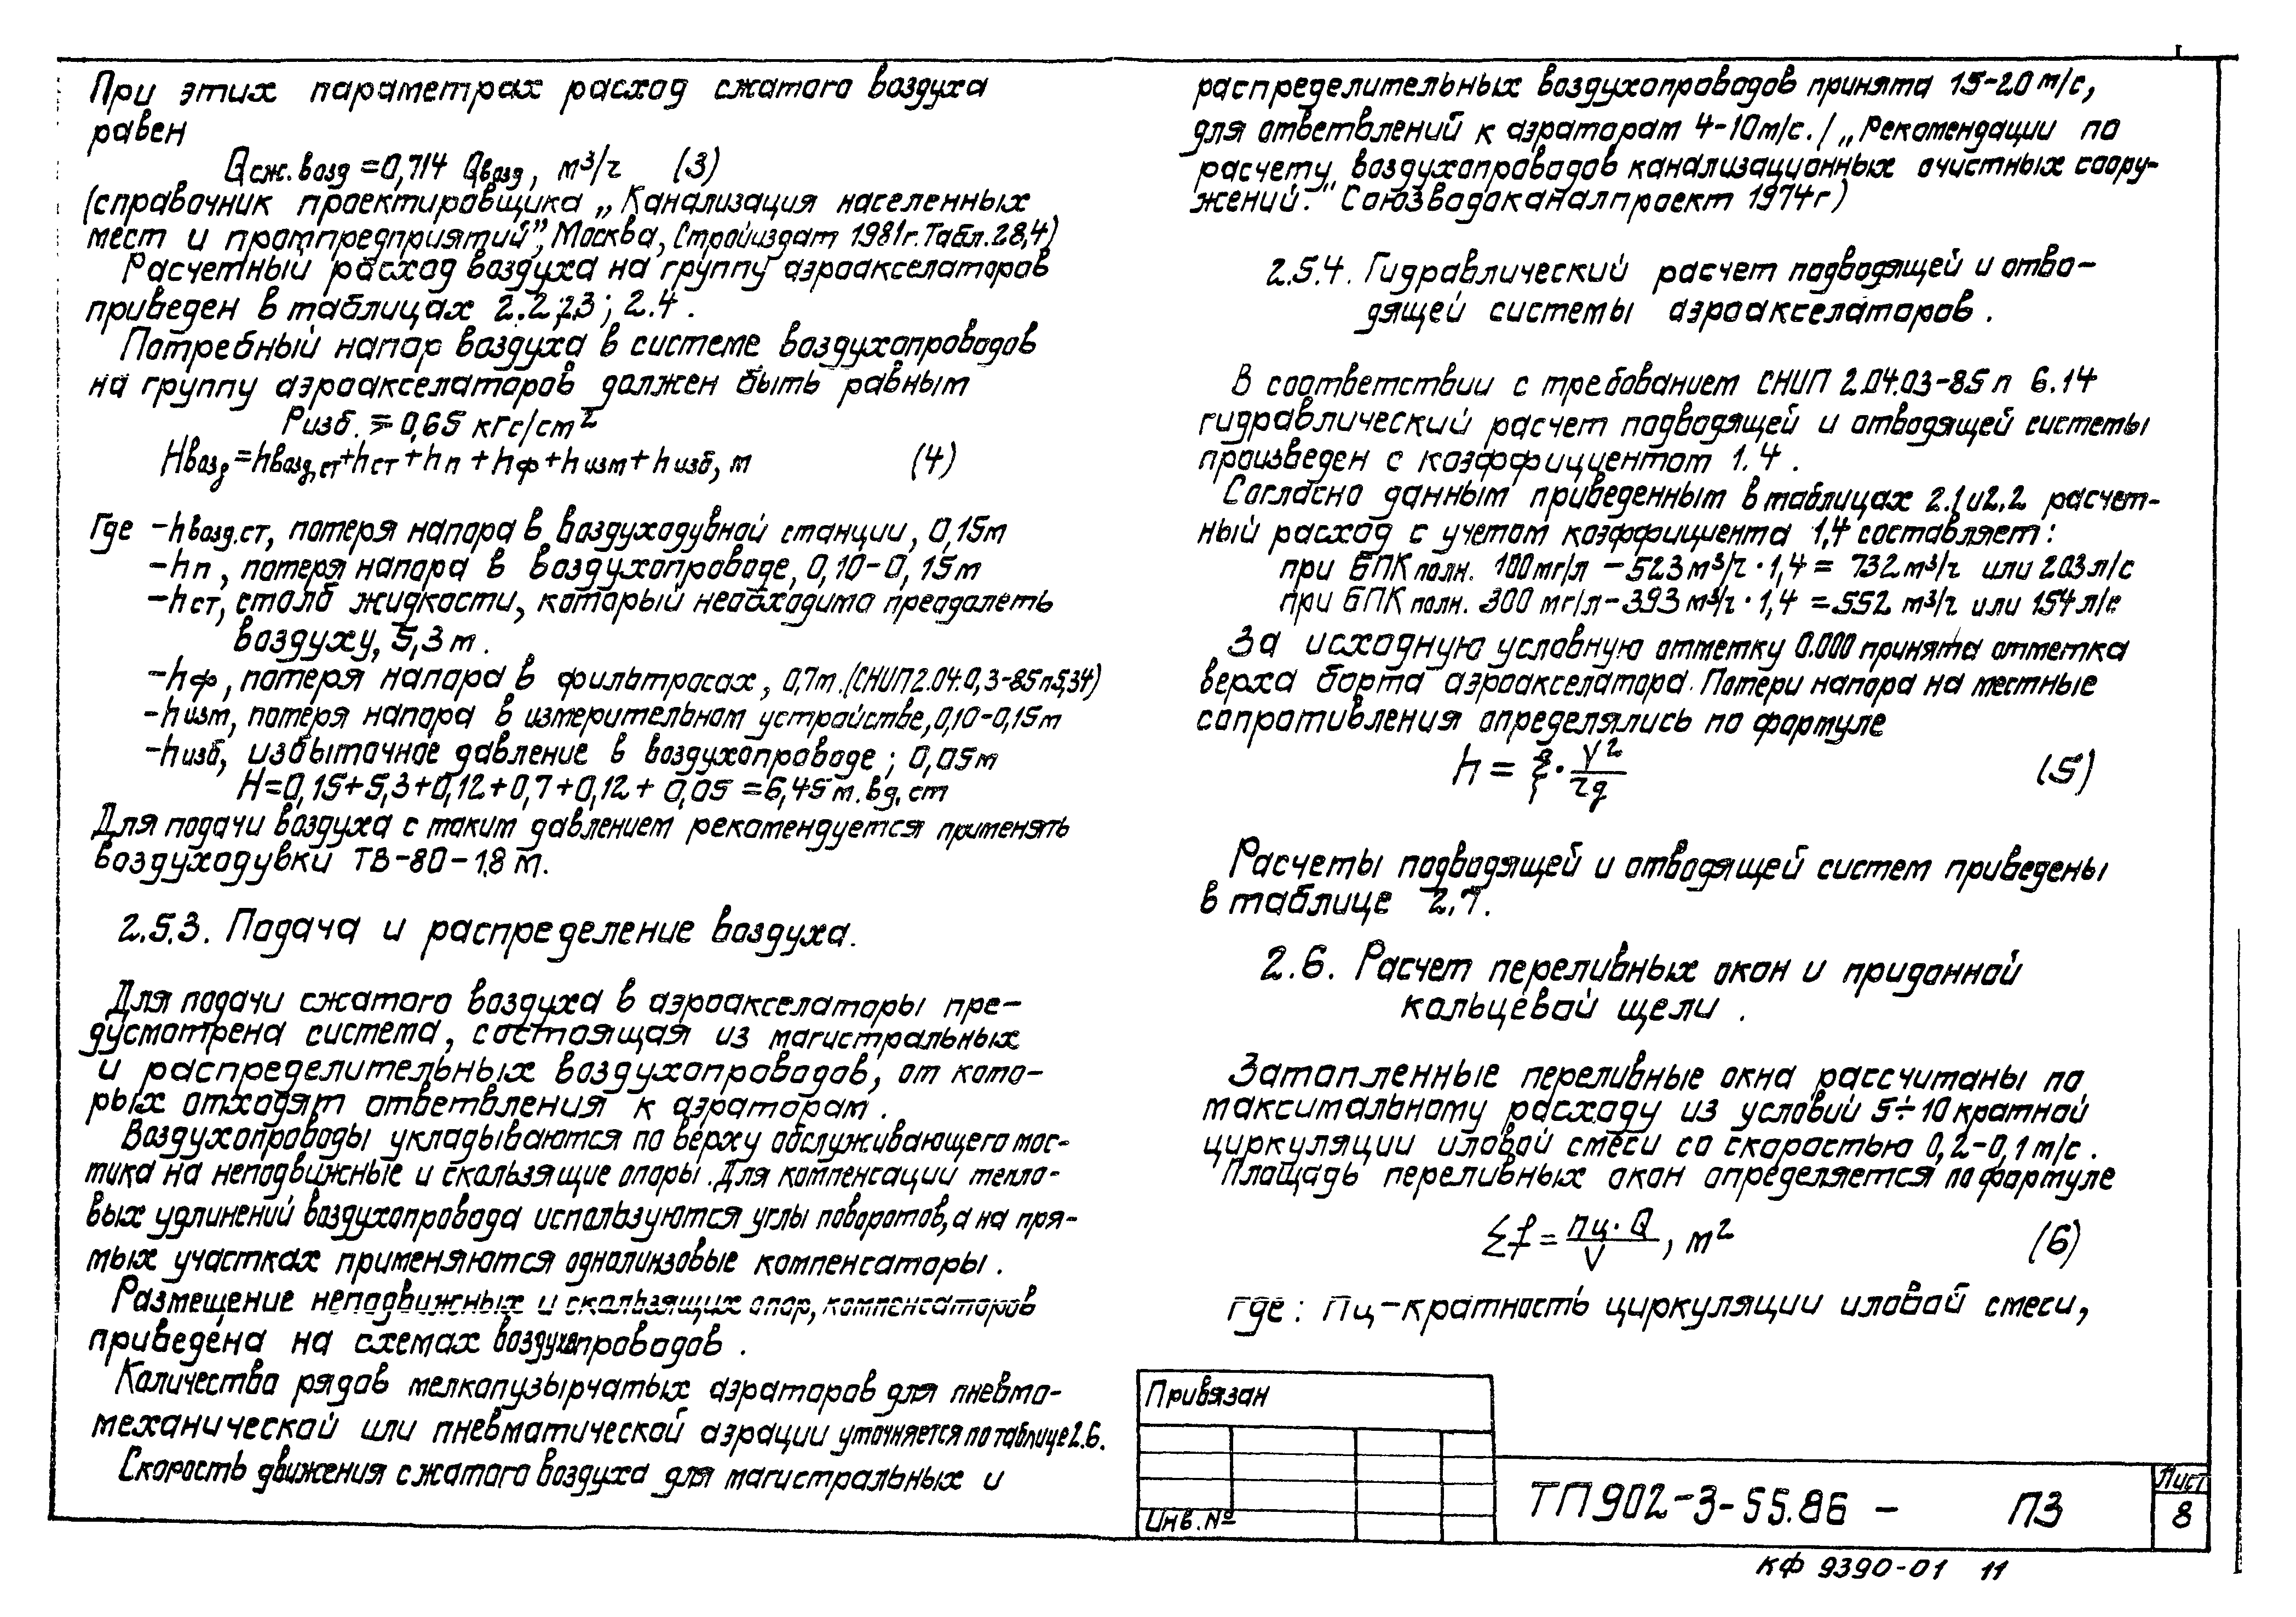 При этих параметрах расход сжатого воздуха
равен
Qсж.возд = 0,714 Qвозд, м³/ч (3)
(справочник проектировщика „Канализация населенных
мест и промпредприятий”, Москва, Стройиздат 1981г. Табл. 28,4)
Расчетный расход воздуха на группу аэроакселаторов
приведен в таблицах 2.2; 2.3; 2.4.
Потребный напор воздуха в системе воздухопроводов
на группу аэроакселаторов должен быть равным
Ризб. ≥ 0,65 кгс/см²
Hвозд = hвозд.ст + hст + hп + hф + hизм + hизб, м (4)
Где -hвозд.ст, потеря напора в воздуходувной станции, 0,15м
-hп, потеря напора в воздухопроводе, 0,10-0,15м
-hст, столб жидкости, который необходимо преодолеть
воздуху, 5,3м.
-hф, потеря напора в фильтросах, 0,7м. (СНИП 2.04.0,3-85 п5,34)
-hизм, потеря напора в измерительном устройстве, 0,10-0,15м
-hизб, избыточное давление в воздухопроводе; 0,05м
H=0,15+5,3+0,12+0,7+0,12+0,05=6,45 м.вд.ст
Для подачи воздуха с таким давлением рекомендуется применять
воздуходувки ТВ-80-1.8 м.
2.5.3. Подача и распределение воздуха.
Для подачи сжатого воздуха в аэроакселаторы пре-
дусмотрена система, состоящая из магистральных
и распределительных воздухопроводов, от кото-
рых отходят ответвления к аэраторам.
Воздухопроводы укладываются по верху обслуживающего мос-
тика на неподвижные и скользящие опоры. Для компенсации тепло-
вых удлинений воздухопровода используются углы поворотов, а на пря-
мых участках применяются однолинзовые компенсаторы.
Размещение неподвижных и скользящих опор, компенсаторов
приведена на схемах воздухопроводов.
Количество рядов мелкопузырчатых аэраторов для пневмо-
механической или пневматической аэрации уточняется по таблице 2.6.
Скорость движения сжатого воздуха для магистральных и
распределительных воздухопроводов принята 15-20 м/с,
для ответвлений к аэраторам 4-10м/с. / „Рекомендации по
расчету воздухопроводов канализационных очистных соору-
жений.” Союзводоканалпроект 1974г)
2.5.4. Гидравлический расчет подводящей и отво-
дящей системы аэроакселаторов.
В соответствии с требованием СНИП 2.04.03-85 п 6.14
гидравлический расчет подводящей и отводящей системы
произведен с коэффициентом 1.4.
Согласно данным приведенным в таблицах 2.1 и 2.2 расчет-
ный расход с учетом коэффициента 1,4 составляет:
при БПК полн. 100мг/л - 523м³/ч · 1,4 = 732 м³/ч или 203 л/с
при БПК полн. 300 мг/л - 393 м³/ч · 1,4 = 552 м³/ч или 154 л/с
За исходную условную отметку 0.000 принята отметка
верха борта аэроакселатора. Потери напора на местные
сопротивления определялись по формуле
h = ξ · V²/2g (5)
Расчеты подводящей и отводящей систем приведены
в таблице 2.7.
2.6. Расчет переливных окон и придонной
кольцевой щели.
Затопленные переливные окна рассчитаны по
максимальному расходу из условий 5÷10 кратной
циркуляции иловой смеси со скоростью 0,2-0,1 м/с.
Площадь переливных окон определяется по формуле
Σf = nц · Q/V, м² (6)
где: nц - кратность циркуляции иловой смеси,
Привязан
Инв. №
ТП 902-3-55.86 - ПЗ
Лист
8
КФ 9390-01 11